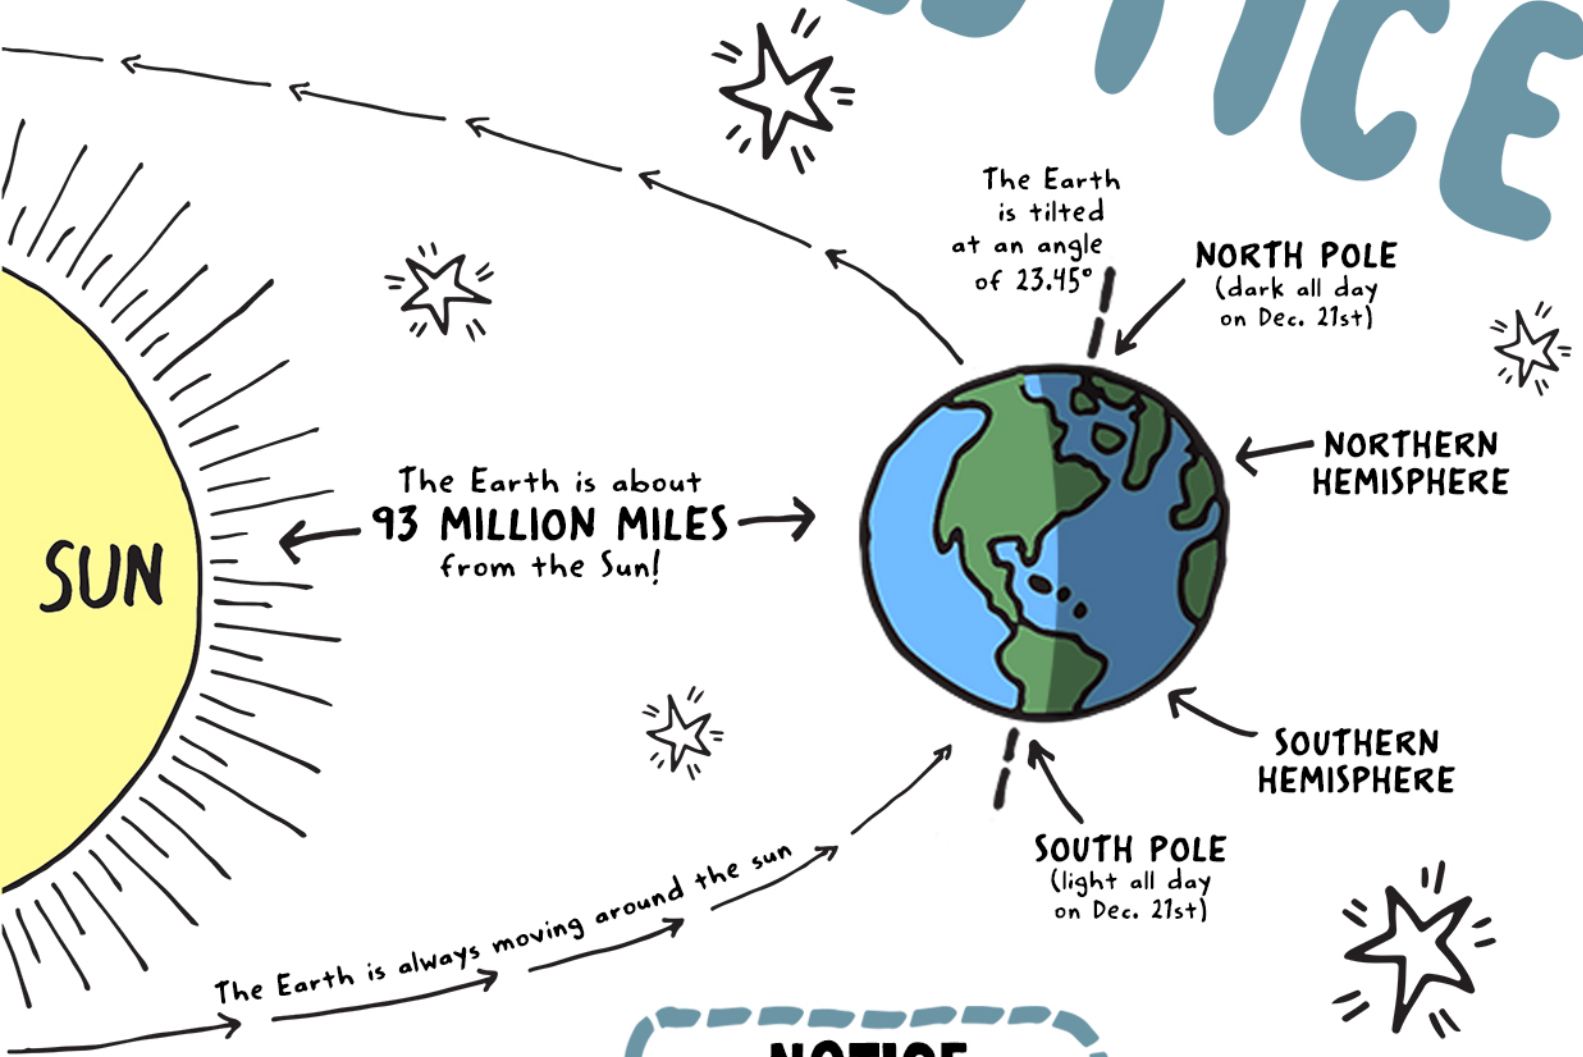 TICE
The Earth
is tilted
at an angle
of 23.45°
NORTH POLE
(dark all day
on Dec. 21st)
NORTHERN
HEMISPHERE
The Earth is about
93 MILLION MILES
from the Sun!
SUN
SOUTHERN
HEMISPHERE
SOUTH POLE
(light all day
on Dec. 21st)
The Earth is always moving around the sun
NOTICE